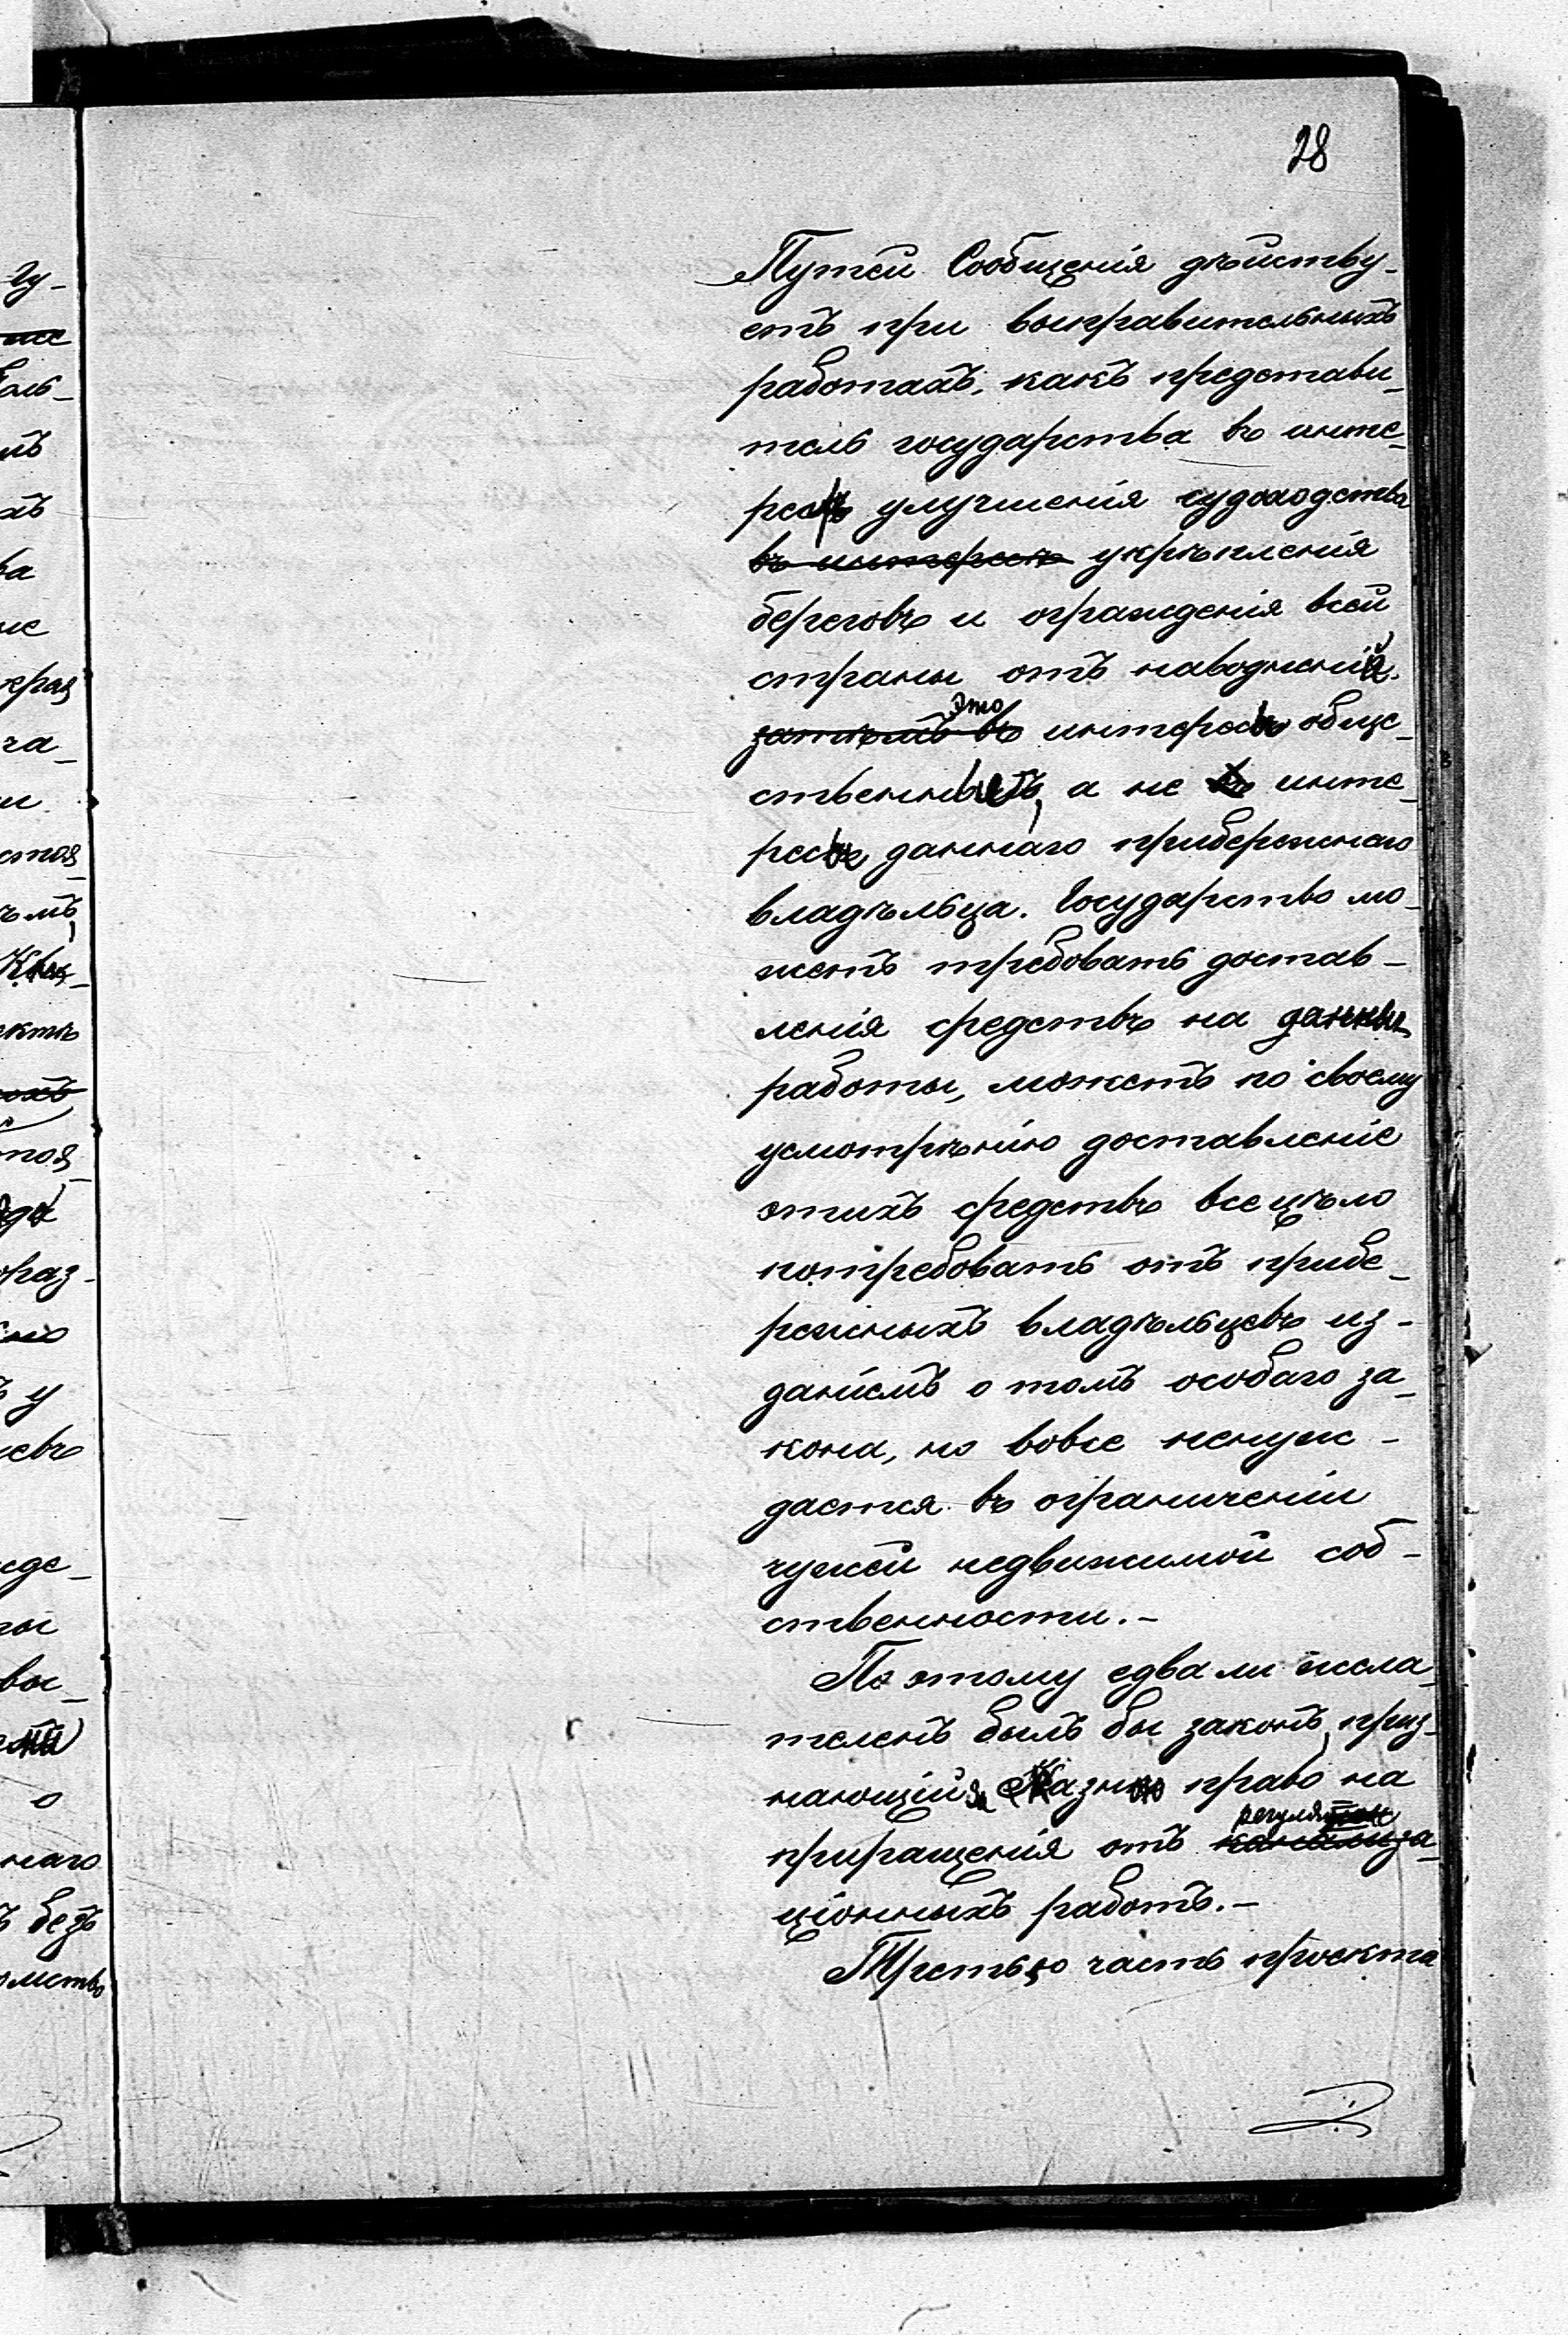 28
Путей Сообщенія дѣйству-
етъ при выправительныхъ
работахъ, какъ представи-
тель государства въ инте-
ресѣ улучшенія судоходства
въ интересѣ укрѣпленія
береговъ и огражденія всей
страны отъ наводненій.
Это
затѣмъ въ интересъ обще-
ственный, а не инте-
ресъ даннаго прибережнаго
владѣльца. Государство мо-
жетъ требовать достав-
ленія средствъ на данныя
работы, можетъ по своему
усмотрѣнію доставленіе
этихъ средствъ всецѣло
потребовать отъ прибе-
режныхъ владѣльцевъ из-
даніемъ о томъ особаго за-
кона, но вовсе ненуж-
дается въ ограниченіи
чужей недвижимой соб-
ственности.-
По этому едва ли жела-
теленъ былъ бы законъ, приз-
нающій за Казною право на
регуляціон
приращенія отъ канализа-
ціонныхъ работъ.-
Третью часть проекта